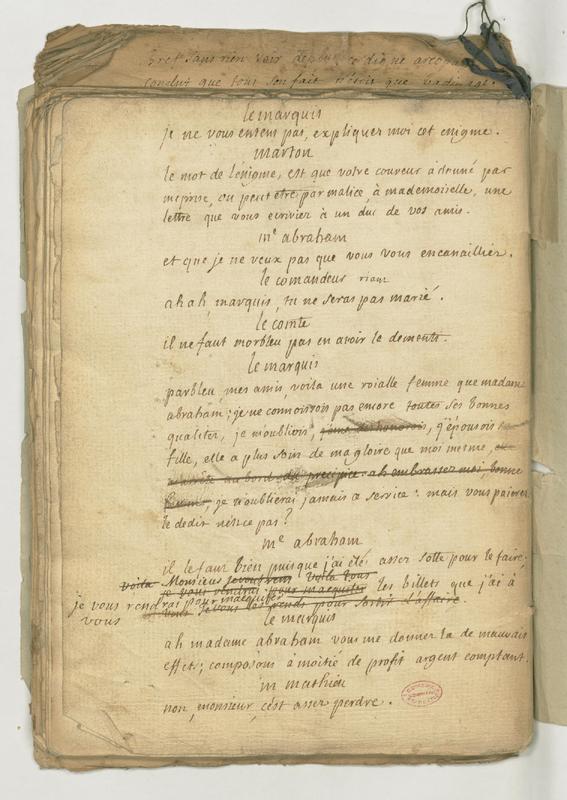 bref sans rien voir
conclut que tout son fait n'étoit que badinage.
le marquis
je ne vous entens pas, expliquez moi cet enigme.
marton
le mot de l'enigme, est que votre coureur a donné par
meprise, ou peut etre par malice, à mademoiselle, une
lettre que vous ecriviez à un duc de vos amis.
me abraham
et que je ne veux pas que vous vous encanailliez.
le comandeur riant
ah ah, marquis, tu ne seras pas marié.
le comte
il ne faut morbleu pas en avoir le dementi.
le marquis
parbleu, mes amis, voila une roialle femme que madame
abraham; je ne connoissois pas encore toutes ses bonnes
qualitez, je m'oubliois, je me deshonorois, j'épousois sa
fille, elle a plus soin de ma gloire que moi mesme, elle
m'arrête au bord du precipice. ah embrassez moi, bonne
femme, je n'oublierai jamais ce service: mais vous paierez
le dedit n'est ce pas?
me abraham
il le faut bien puisque j'ai été assez sotte pour le faire;
voila Monsieur voila tous
je vous rendrai pour m'acquitter les billets que j'ai à
je vous rendrai pour m'acquitter
vous je vous les rends pour sortir d'affaire.
le marquis
ah madame abraham vous me donnez la de mauvais
effets; composons à moitié de profit argent comptant.
m mathieu
non, monsieur, c'est assez perdre.